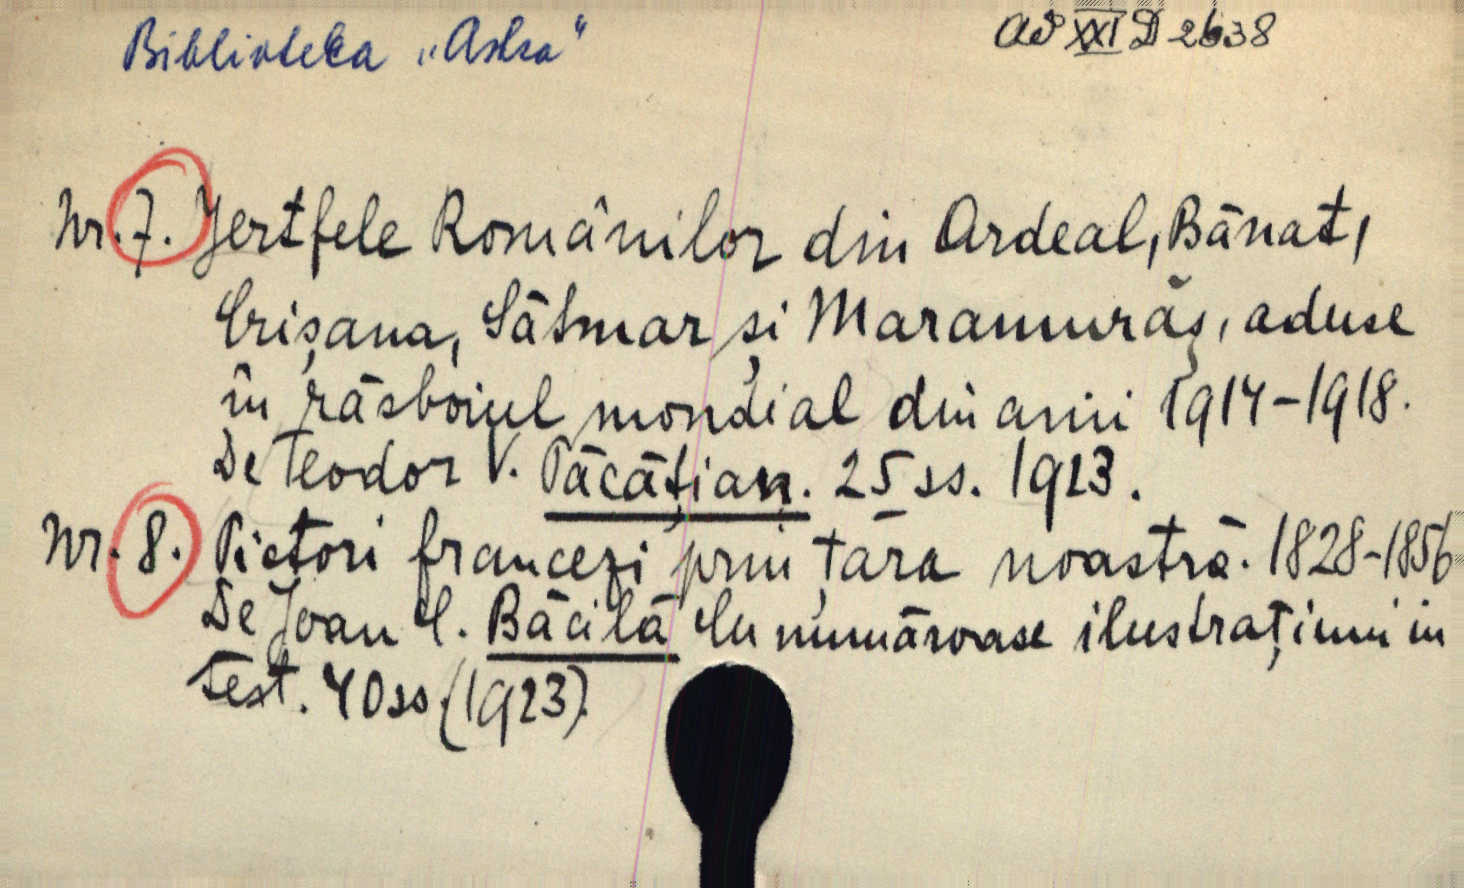 Biblioteka „Astra"
AD XXI D 2638
Nr. 7. Jertfele Românilor din Ardeal, Bănat,
Crișana, Sătmar și Maramurăș, aduse
în răsboiul mondial din anii 1914-1918.
De Teodor V. Păcățian. 25 ss. 1923.
Nr. 8. Pictori francezi prin țara noastră. 1828-1856
De Joan C. Băcilă Cu număroase ilustrațiuni in
text. 40 ss. (1923).